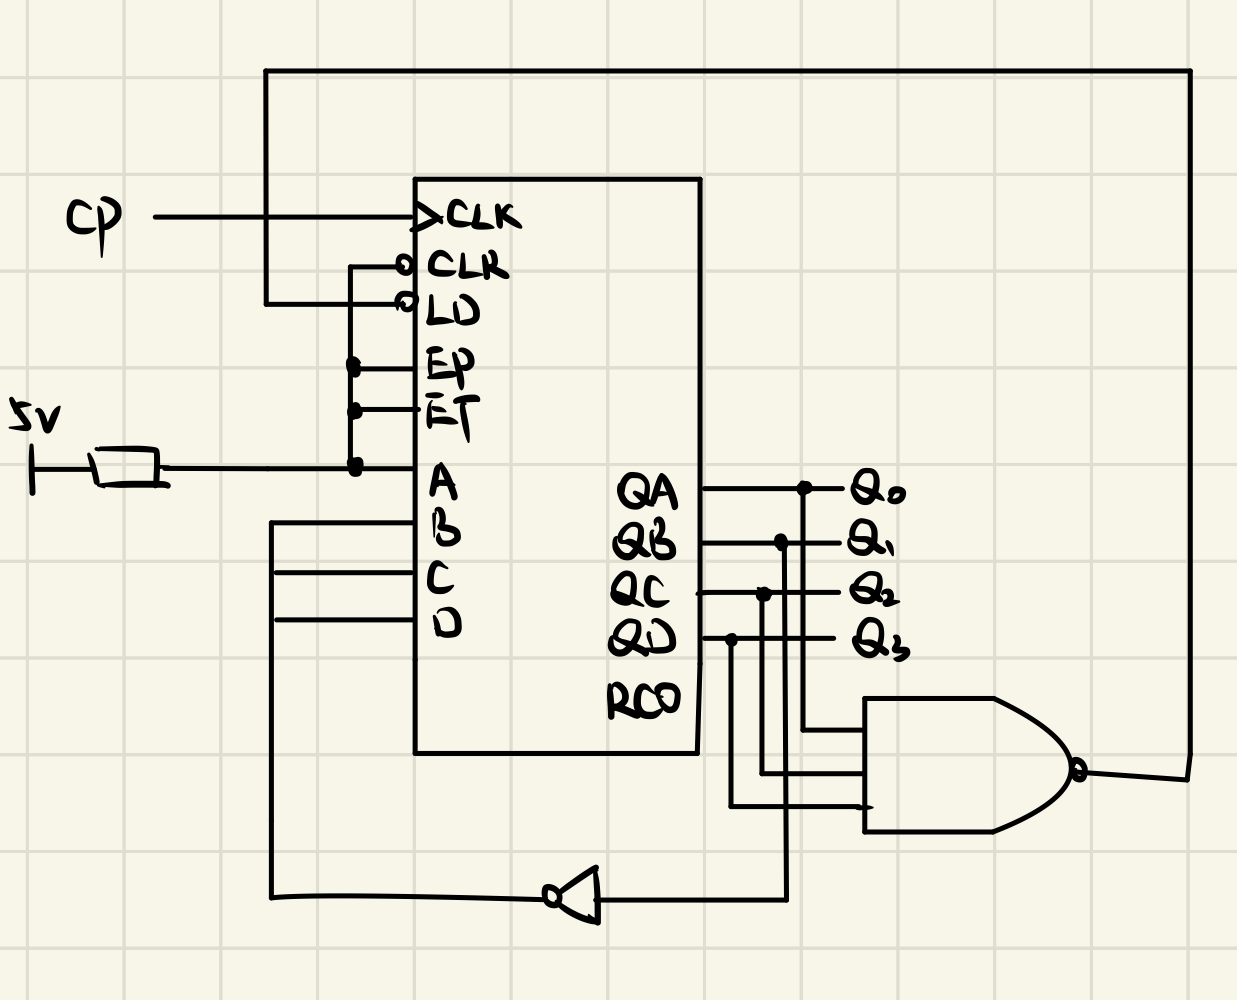 CP
CLK
CLR
LD
EP
ET
5V
A
B
C
D
QA
QB
QC
QD
RCO
Q0
Q1
Q2
Q3